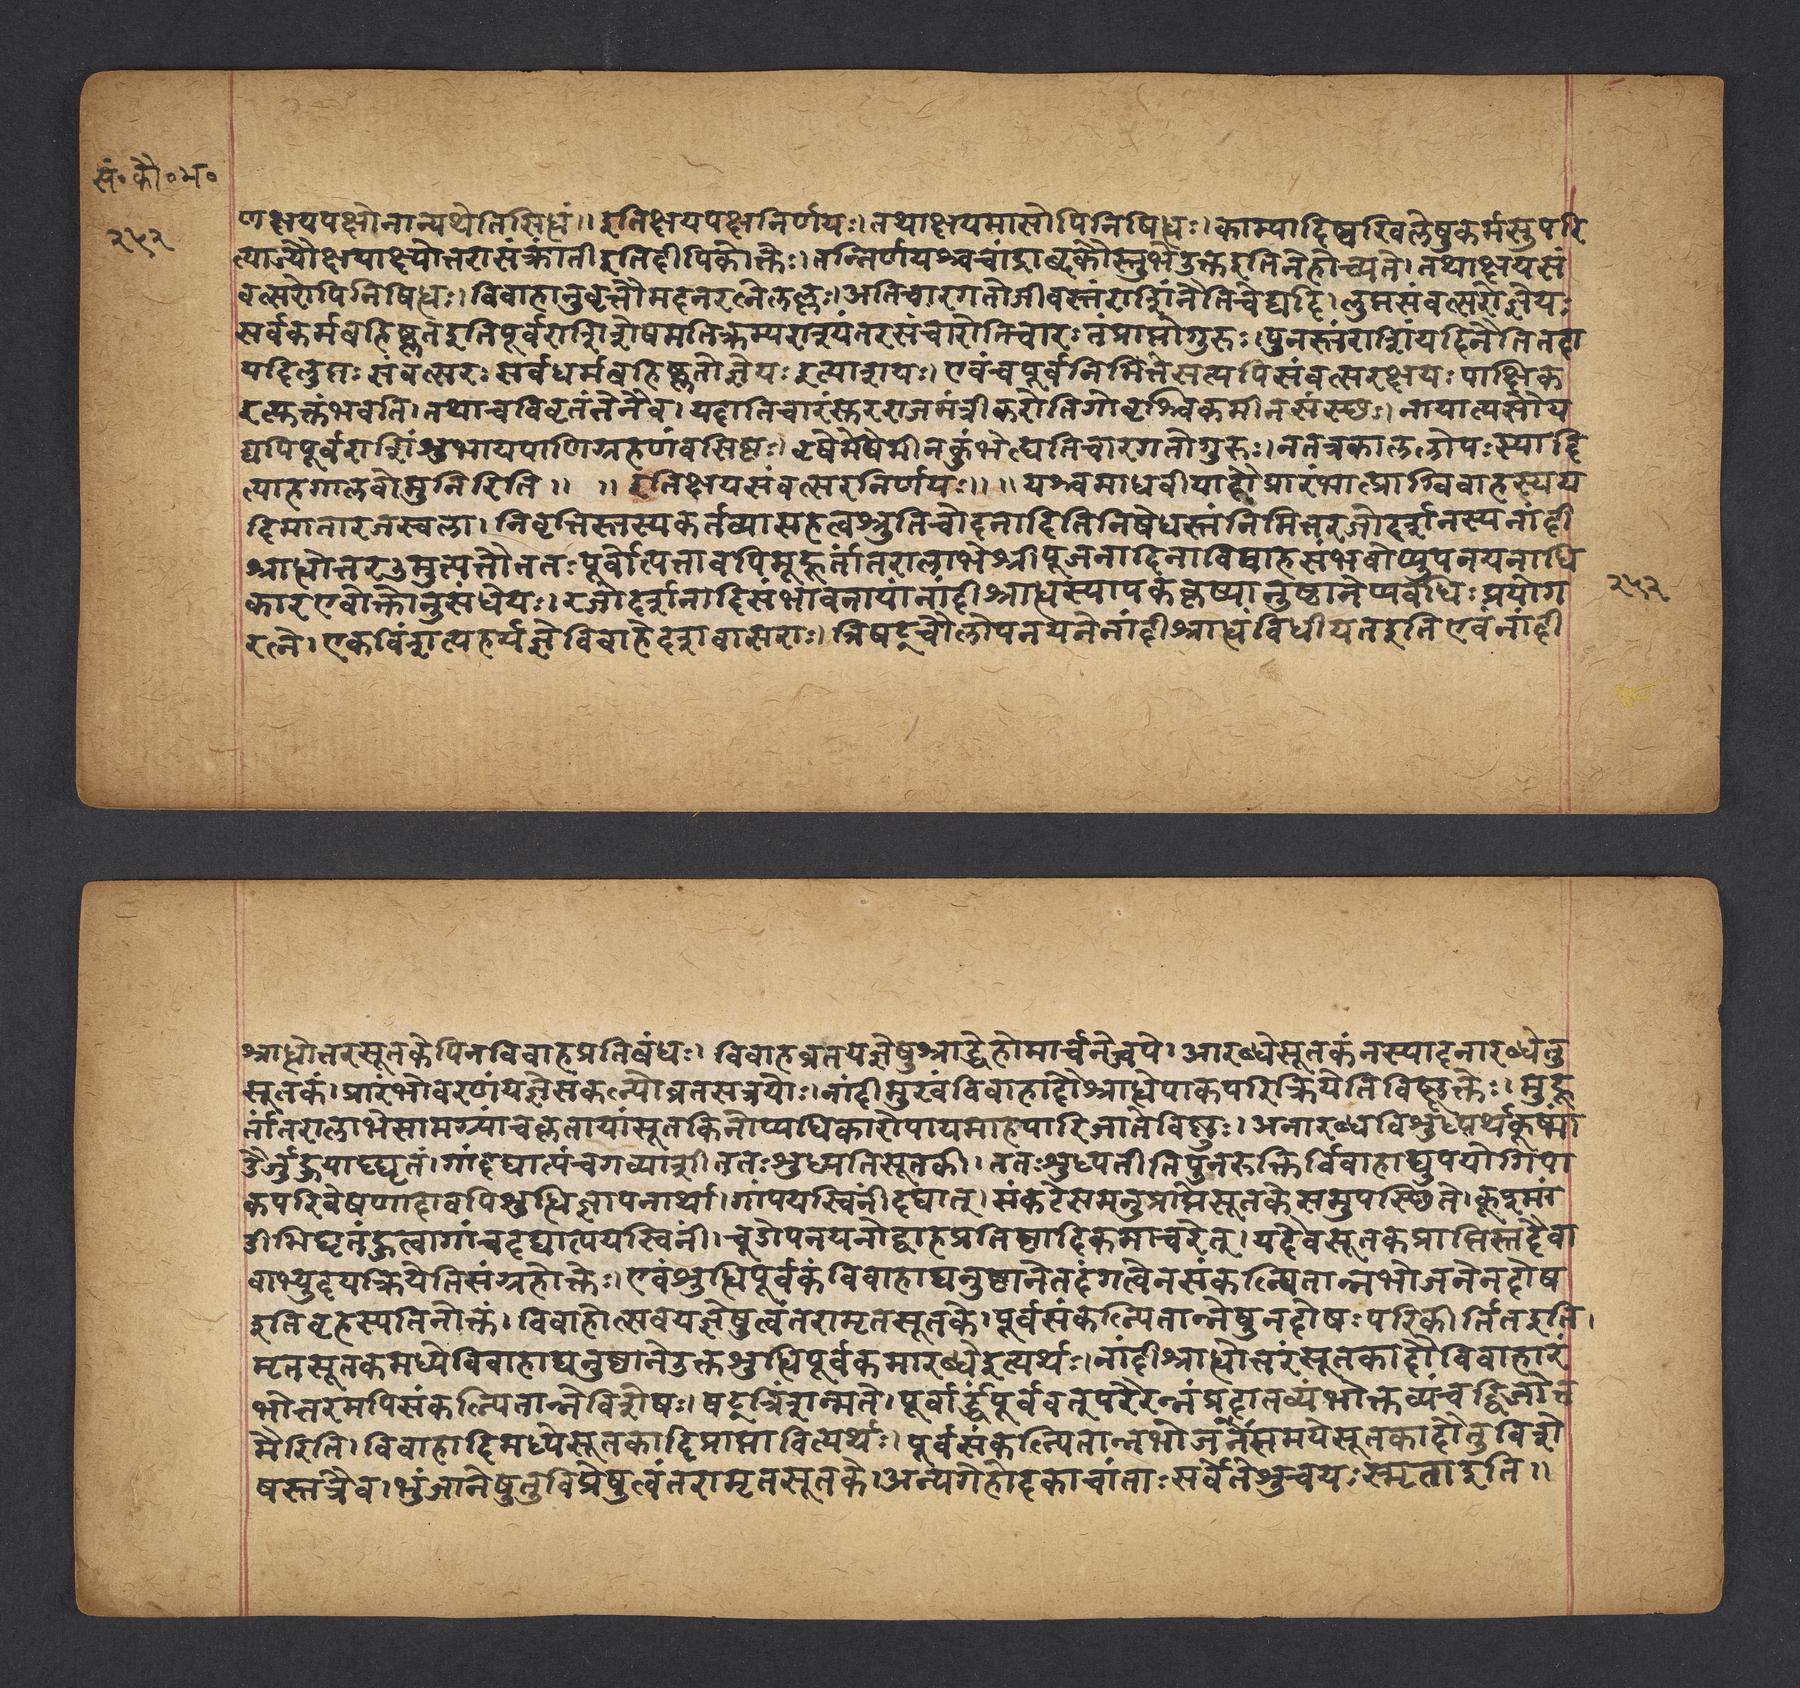 सं॰कौ॰भ॰
२५२
णक्षयपक्षोनान्यथेतिसिद्धं॥इतिक्षयपक्षनिर्णयः।तथाक्षयमासोपिनिषिद्धः।काम्यादिष्वखिलेषुकर्मसुपरि
त्याज्यौक्षयाक्ष्योत्तरासंक्रांतीइतिदीपिकोक्तैः।तन्निर्णयश्चचांद्राब्दकौस्तुभेउक्तइतिनेहोच्यते।तथाक्षयसं
वत्सरोपिनिषिद्धः।विवाहानुवृत्तौमदनरत्नेलल्लः।अतिचारगतोजीवस्तंराशिंनैतिचेद्यदि।लुप्तसंवत्सरोज्ञेयः
सर्वकर्मबहिष्कृतइतिपूर्वराशिशेषमतिक्रम्यराश्यंतरसंचारोतिचारःतंप्राप्तोगुरुः।पुनस्तंराशिंयदिनैतितदा
यदिलुप्तःसंवत्सरःसर्वधर्मबहिष्कृतोज्ञेयःइत्याशयः।एवंचपूर्वनिमित्तेसत्यपिसंवत्सरक्षयःपाक्षिक
इत्युक्तंभवति।तथाचविवृतंतेनैव।यदातिचारंसुरराजमंत्रीकरोतिगोवृश्चिकमीनसंस्छः।नायात्यसौय
द्यपिपूर्वराशिंशुभायपाणिग्रहणंवसिष्ठः।वृषेमेषेमीनकुंभेद्यतिचारगतोगुरुः।नतत्रकाललोपःस्यादि
त्याहगालवोमुनिरिति॥ ॥इतिक्षयसंवत्सरनिर्णयः॥॥यश्चमाधवीयादौप्रारंभात्प्राग्विवाहस्यय
दिमातारजस्वला।निवृत्तिस्तस्यकर्तव्यासहत्वश्रुतिचोदनादितिनिषेधस्तंनिमित्तरजोदर्शनस्यनांदी
श्राद्धोत्तर३मुत्पत्तौततःपूर्वोत्पत्तावपिमूहूर्तांतरालाभेश्रीपूजनादिनाविवाहसंभवोप्युपनयनाधि
कारएवोक्तोनुसंधेयः।रजोदर्शनादिसंभावनायांनांदीश्राद्धस्यापकृष्यानुष्ठानेप्यवधिःप्रयोग
रत्ने।एकविंशत्यहर्यज्ञेविवाहेदशवासराः।त्रिषट्चौलोपनयनेनांदीश्राद्धंविधीयतइतिएवंनांदी
२५२
श्राद्धोत्तरसूतकेपिनविवाहप्रतिबंधः।विवाहव्रतयज्ञेषुश्राद्धेहोमार्चनेजपे।आरब्धेसूतकंनस्यादनारब्धेतु
सूतकं।प्रारंभोवरणंयज्ञेसंकल्पोव्रतसत्रयोः।नांदीमुखंविवाहादौश्राद्धेपाकपरिक्रियेतिविष्णूक्तेः।मुहू
र्तांतरालाभेसामग्र्यांचकृतायांसूतकिनोप्यधिकारोपायमाहपारिजातेविष्णुः।अनारब्धविशुध्यर्थंकूष्मां
डैर्जुहुयाद्घृतं।गांदद्यात्पंचगव्याशीततःशुध्यतिसूतकी।ततःशुध्यतीतिपुनरुक्तिर्विवाहाद्युपयोगिपा
कपरिवेषणादावपिशुद्धिज्ञापनार्था।गांपयस्विनींदद्यात्।संकटेसमनुप्राप्तेसूतकेसमुपस्छिते।कूष्मां
डीभिघृतंहुत्वागांचदद्यात्पयस्विनीं।चूडोपनयनोद्वाहप्रतिष्ठादिकमाचरेत्।यदैवसूतकप्राप्तिस्तदैवा
वाभ्युदयक्रियेतिसंग्रहोक्तेः।एवंशुद्धिपूर्वकंविवाहाद्यनुष्ठानेतदंगत्वेनसंकल्पितान्नभोजनेनदोष
इतिबृहस्पतिनोक्तं।विवाहोत्सवयज्ञेषुत्वंतरामृतसूतके।पूर्वसंकल्पितान्नेषुनदोषःपरिकीर्तितइति।
मृतसूतकमध्येविवाहाद्यनुष्ठानेउक्तशुद्धिपूर्वकमारब्धेइत्यर्थः।नांदीश्राद्धोत्तरंसूतकादौविवाहारं
भोत्तरमपिसंकल्पितान्नेविशेषः।षट्त्रिंशन्मते।पूर्वार्द्धंपूर्ववत्तुपरैरन्नंप्रदातव्यंभोक्तव्यंचद्विजोत्त
मैरिति।विवाहादिमध्येसूतकादिप्राप्तावित्यर्थः।पूर्वसंकल्पितान्नभोजनेसमयेसूतकादौतुविशे
षस्तत्रैव।भुंजानेषुतुविप्रेषुत्वंतरामृतसूतके।अन्यगेहोदकाचांताःसर्वेतेशुचयःस्मृताइति॥